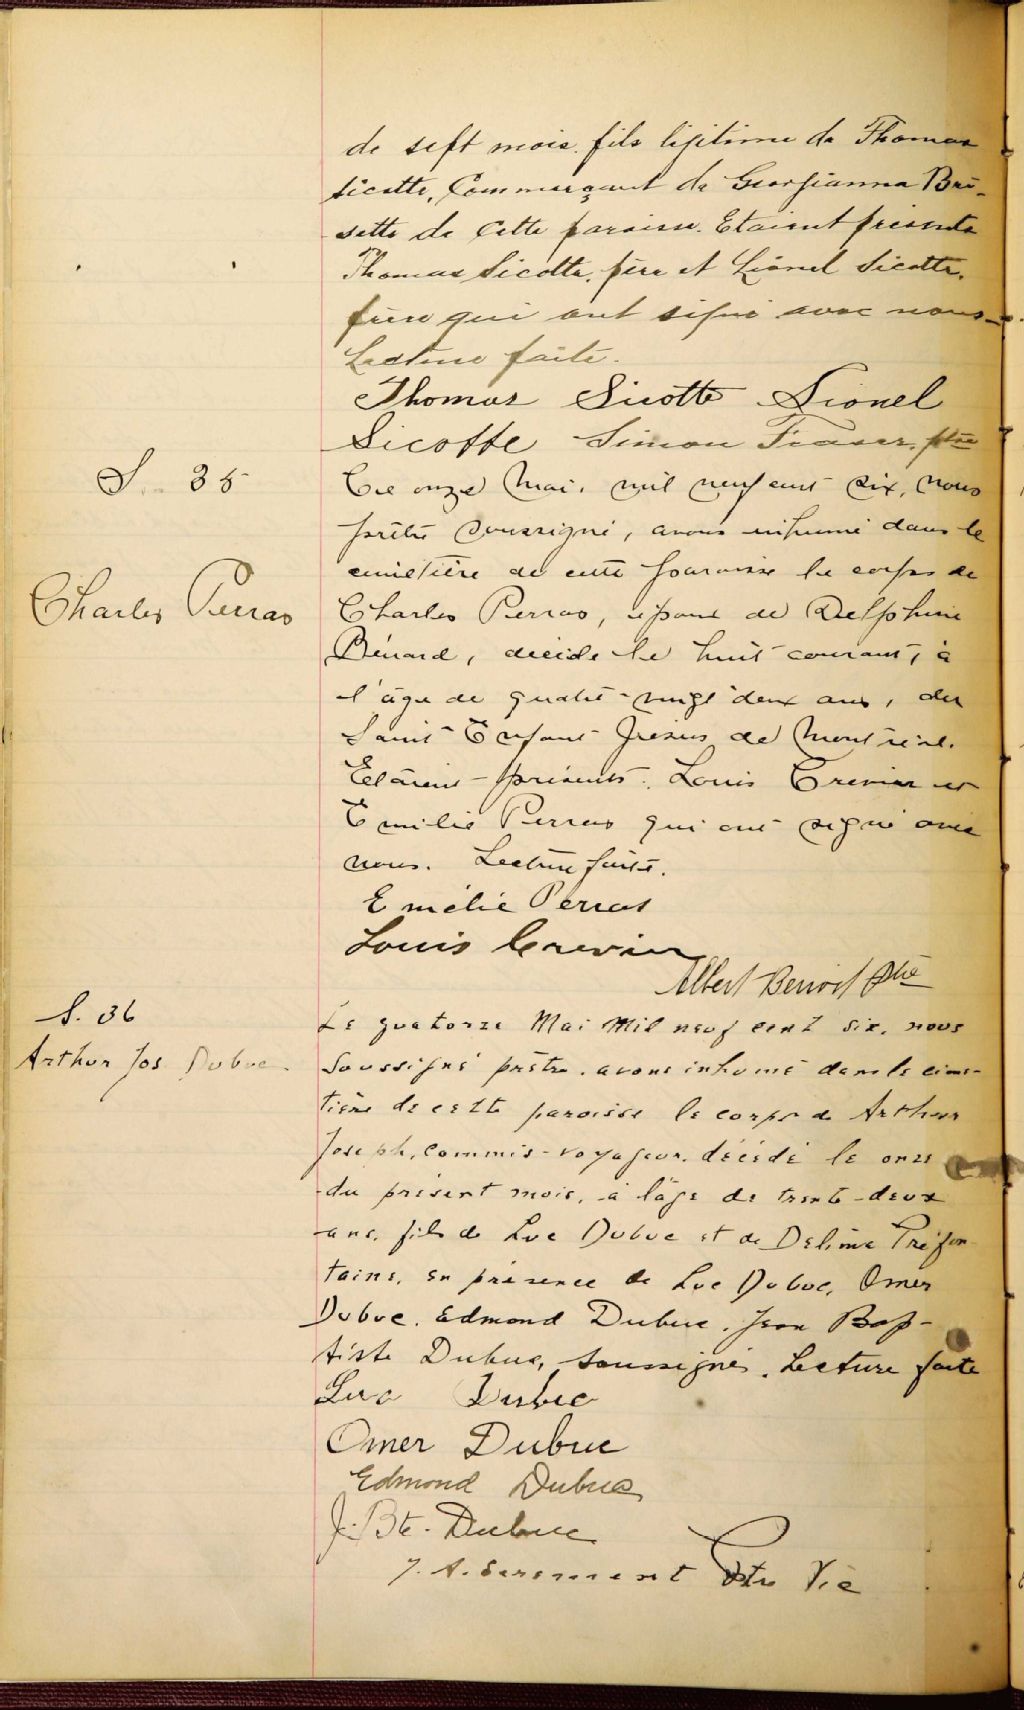 de sept mois. fils légitime de Thomas
Sicotte, Commerçant de Georgianna Bri-
sette de cette paroisse. Etaient présents
Thomas Sicotte, père et Lionel Sicotte,
frère qui ont signé avec nous-
Lecture faite.
Thomas Sicotte Lionel
Sicotte Simon Fraser, ptre
S. 35
Charles Perras
Ce onze Mai, mil neuf cent six, nous
prêtre soussigné, avons inhumé dans le
cimetière de cette paroisse le corps de
Charles Perras, époux de Delphine
Bénard, décédé le huit courant, à
l'âge de quatre-vingt deux ans, du
Saint Enfant Jésus de Montréal.
Etaient présents. Louis Crevier et
Emilie Perras qui ont signé avec
nous. Lecture faite.
Emélie Perras
Louis Crevier
Albert Benoit Ptre
S. 36
Arthur Jos Dubuc.
Le quatorze Mai Mil neuf cent six, nous
Soussigné prêtre, avons inhumé dans le cime-
tière de cette paroisse le corps de Arthur
Joseph, commis-voyageur, décédé le onze
du présent mois, à l'âge de trente-deux
ans, fils de Luc Dubuc et de Délima Préfon-
taine, en présence de Luc Dubuc, Omer
Dubuc, Edmond Dubuc, Jean Bap-
tiste Dubuc, soussignés. Lecture faite
Luc Dubuc
Omer Dubuc
Edmond Dubuc
J. Bte. Dubuc
J. A. Ptre Vic